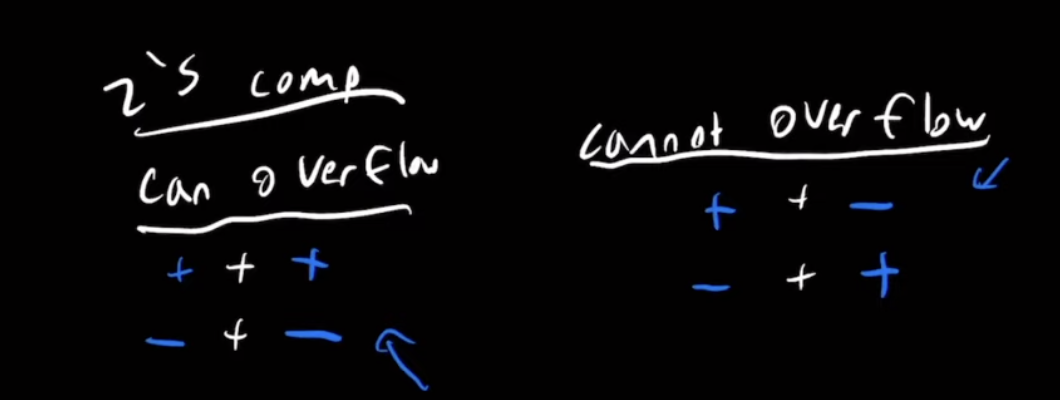 2's comp
can overflow
+ + +
− + −
cannot overflow
+ + −
− + +